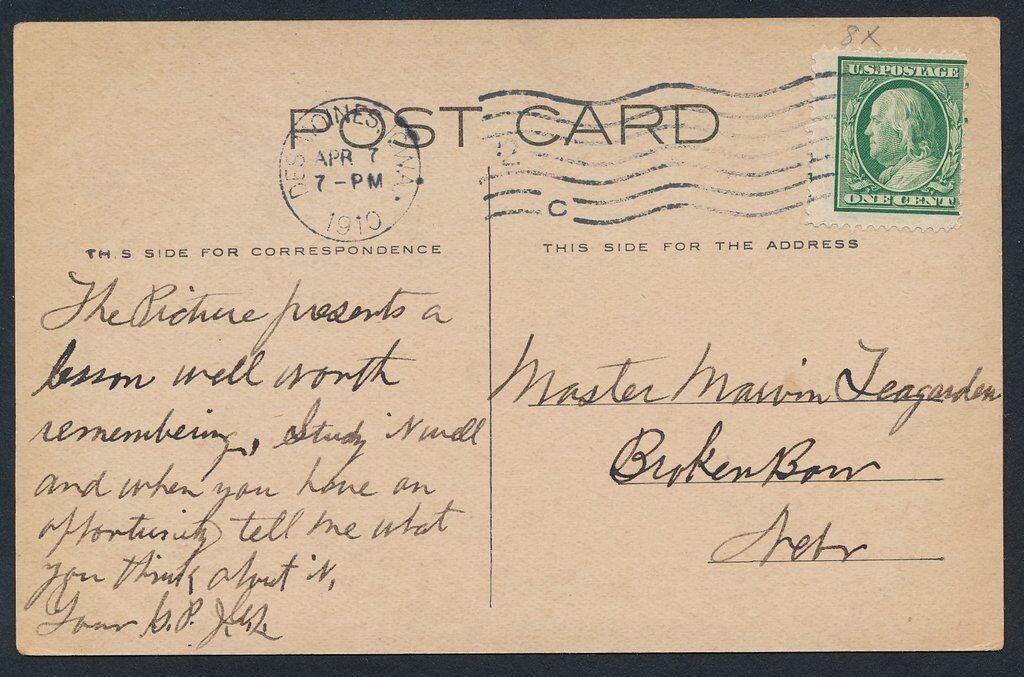 8X
U.S. POSTAGE
ONE CENT
POST CARD
DES MOINES, IOWA.
APR 7
7-PM
1910
C
TH S SIDE FOR CORRESPONDENCE
THIS SIDE FOR THE ADDRESS
The Picture presents a
lesson well worth
remembering, Study it well
and when you have an
opportunity tell me what
you think about it,
Your G.P.
Master Marvin Teagarden
Broken Bow
Nebr